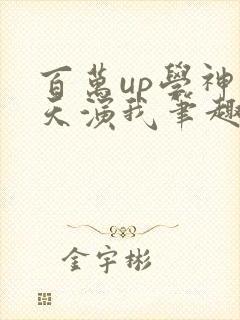 百萬up學神
天演我筆趣
金宇彬